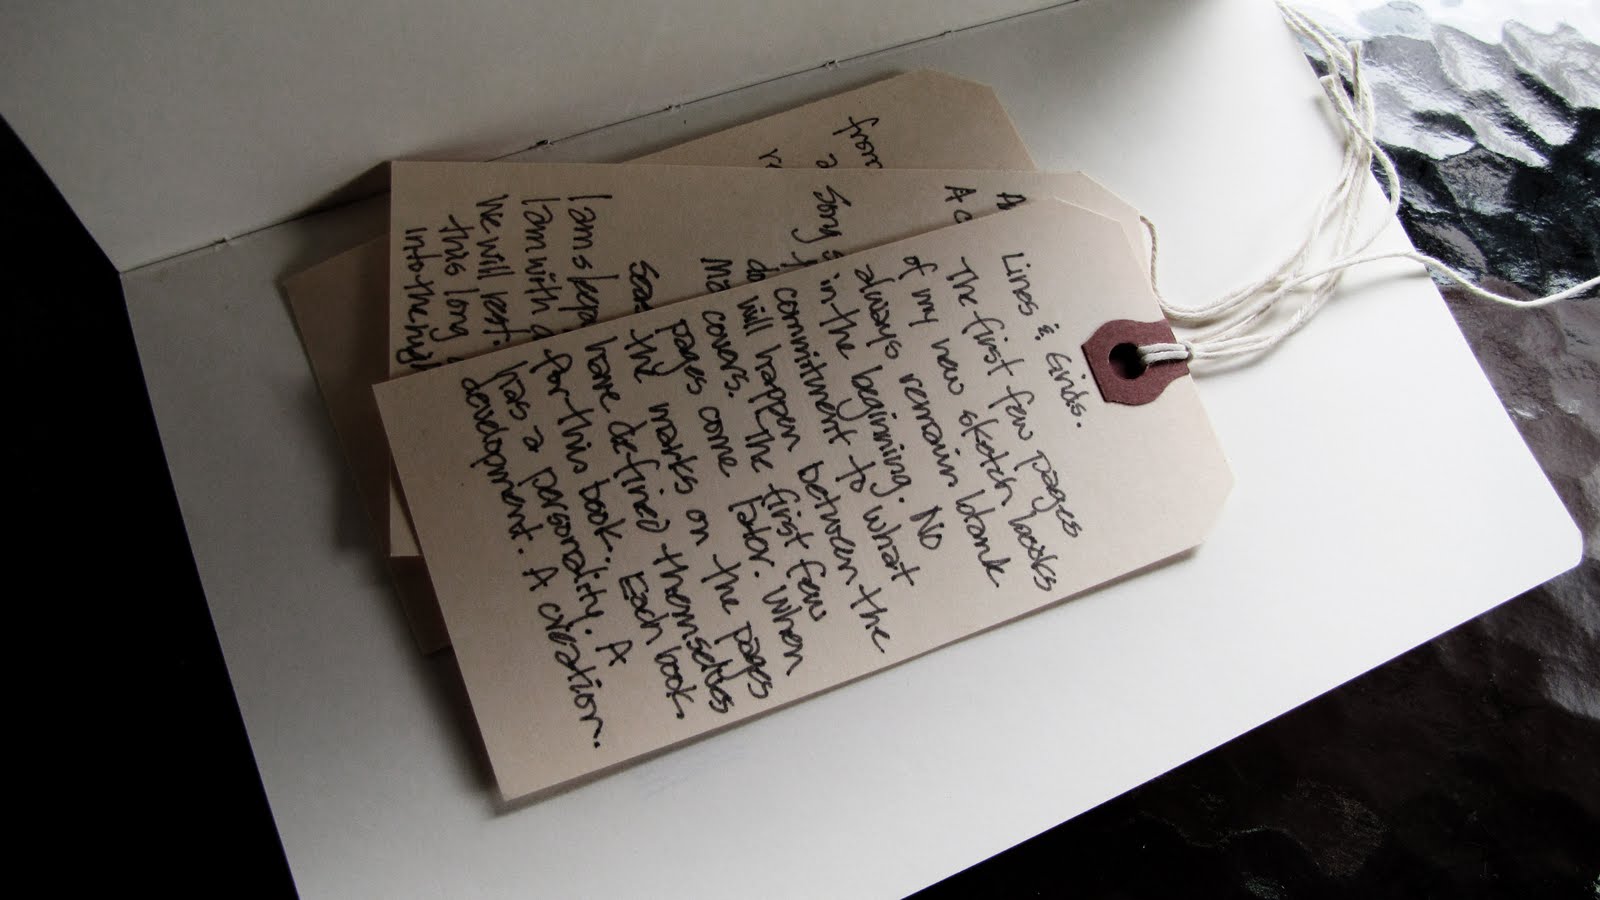 Lines & Grids.
The first few pages
of my new sketch books
always remain blank
in the beginning. No
commitment to what
will happen between the
covers. The first few
pages come later. When
the marks on the pages
have defined themselves
for this book. Each book
has a personality. A
development. A creation.
A
Sory
I am
I am with
We will rest.
this long
into the